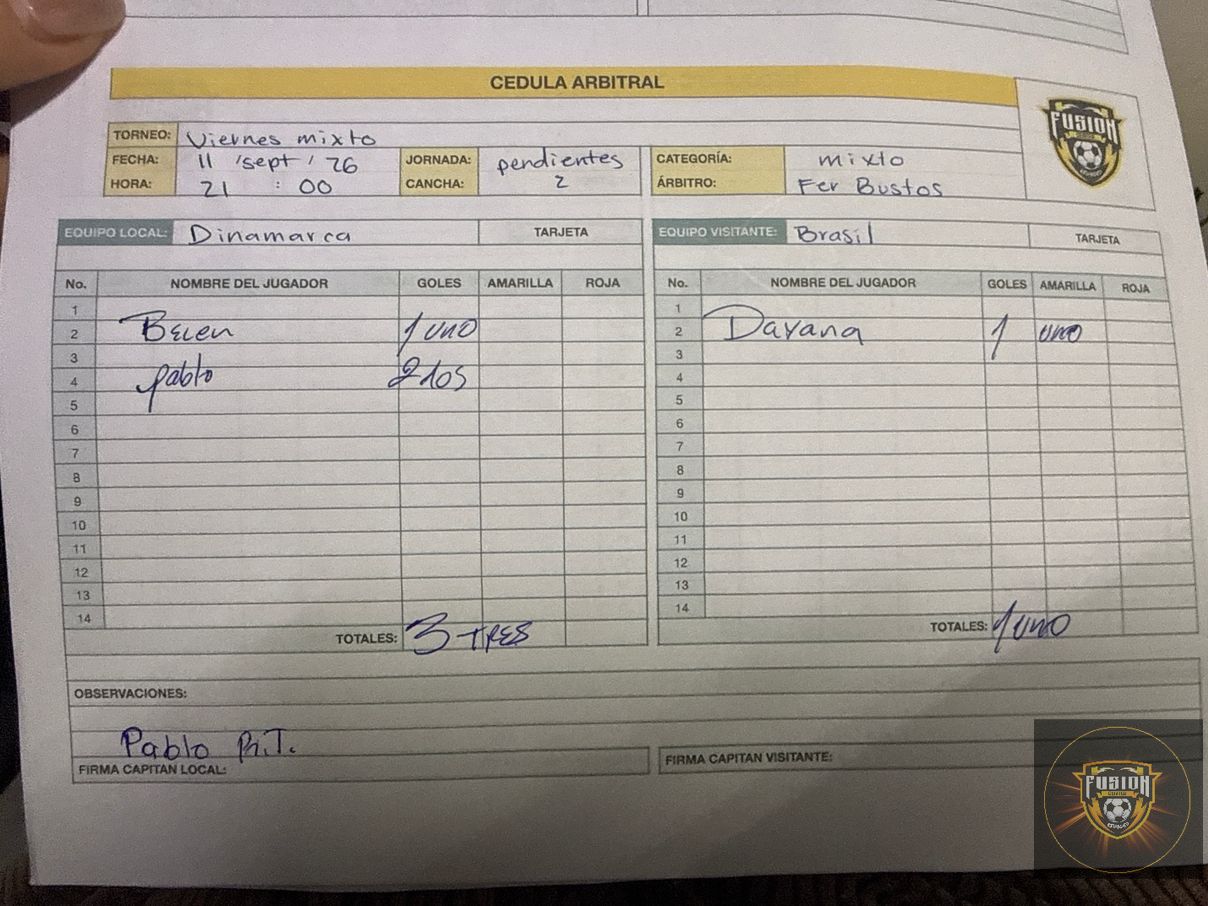 CEDULA ARBITRAL
FUSION
TORNEO: Viernes mixto
FECHA: 11 / sept / 26 JORNADA: pendientes CATEGORÍA: mixto
HORA: 21 : 00 CANCHA: 2 ÁRBITRO: Fer Bustos
EQUIPO LOCAL: Dinamarca TARJETA EQUIPO VISITANTE: Brasil TARJETA
No. NOMBRE DEL JUGADOR GOLES AMARILLA ROJA No. NOMBRE DEL JUGADOR GOLES AMARILLA ROJA
1 1
2 Belen 1 uno 2 Dayana 1 uno
3 3
4 pablo 2 dos 4
5 5
6 6
7 7
8 8
9 9
10 10
11 11
12 12
13 13
14 14
TOTALES: 3 TRES TOTALES: 1 uno
OBSERVACIONES:
Pablo R.T.
FIRMA CAPITAN LOCAL: FIRMA CAPITAN VISITANTE:
FUSION